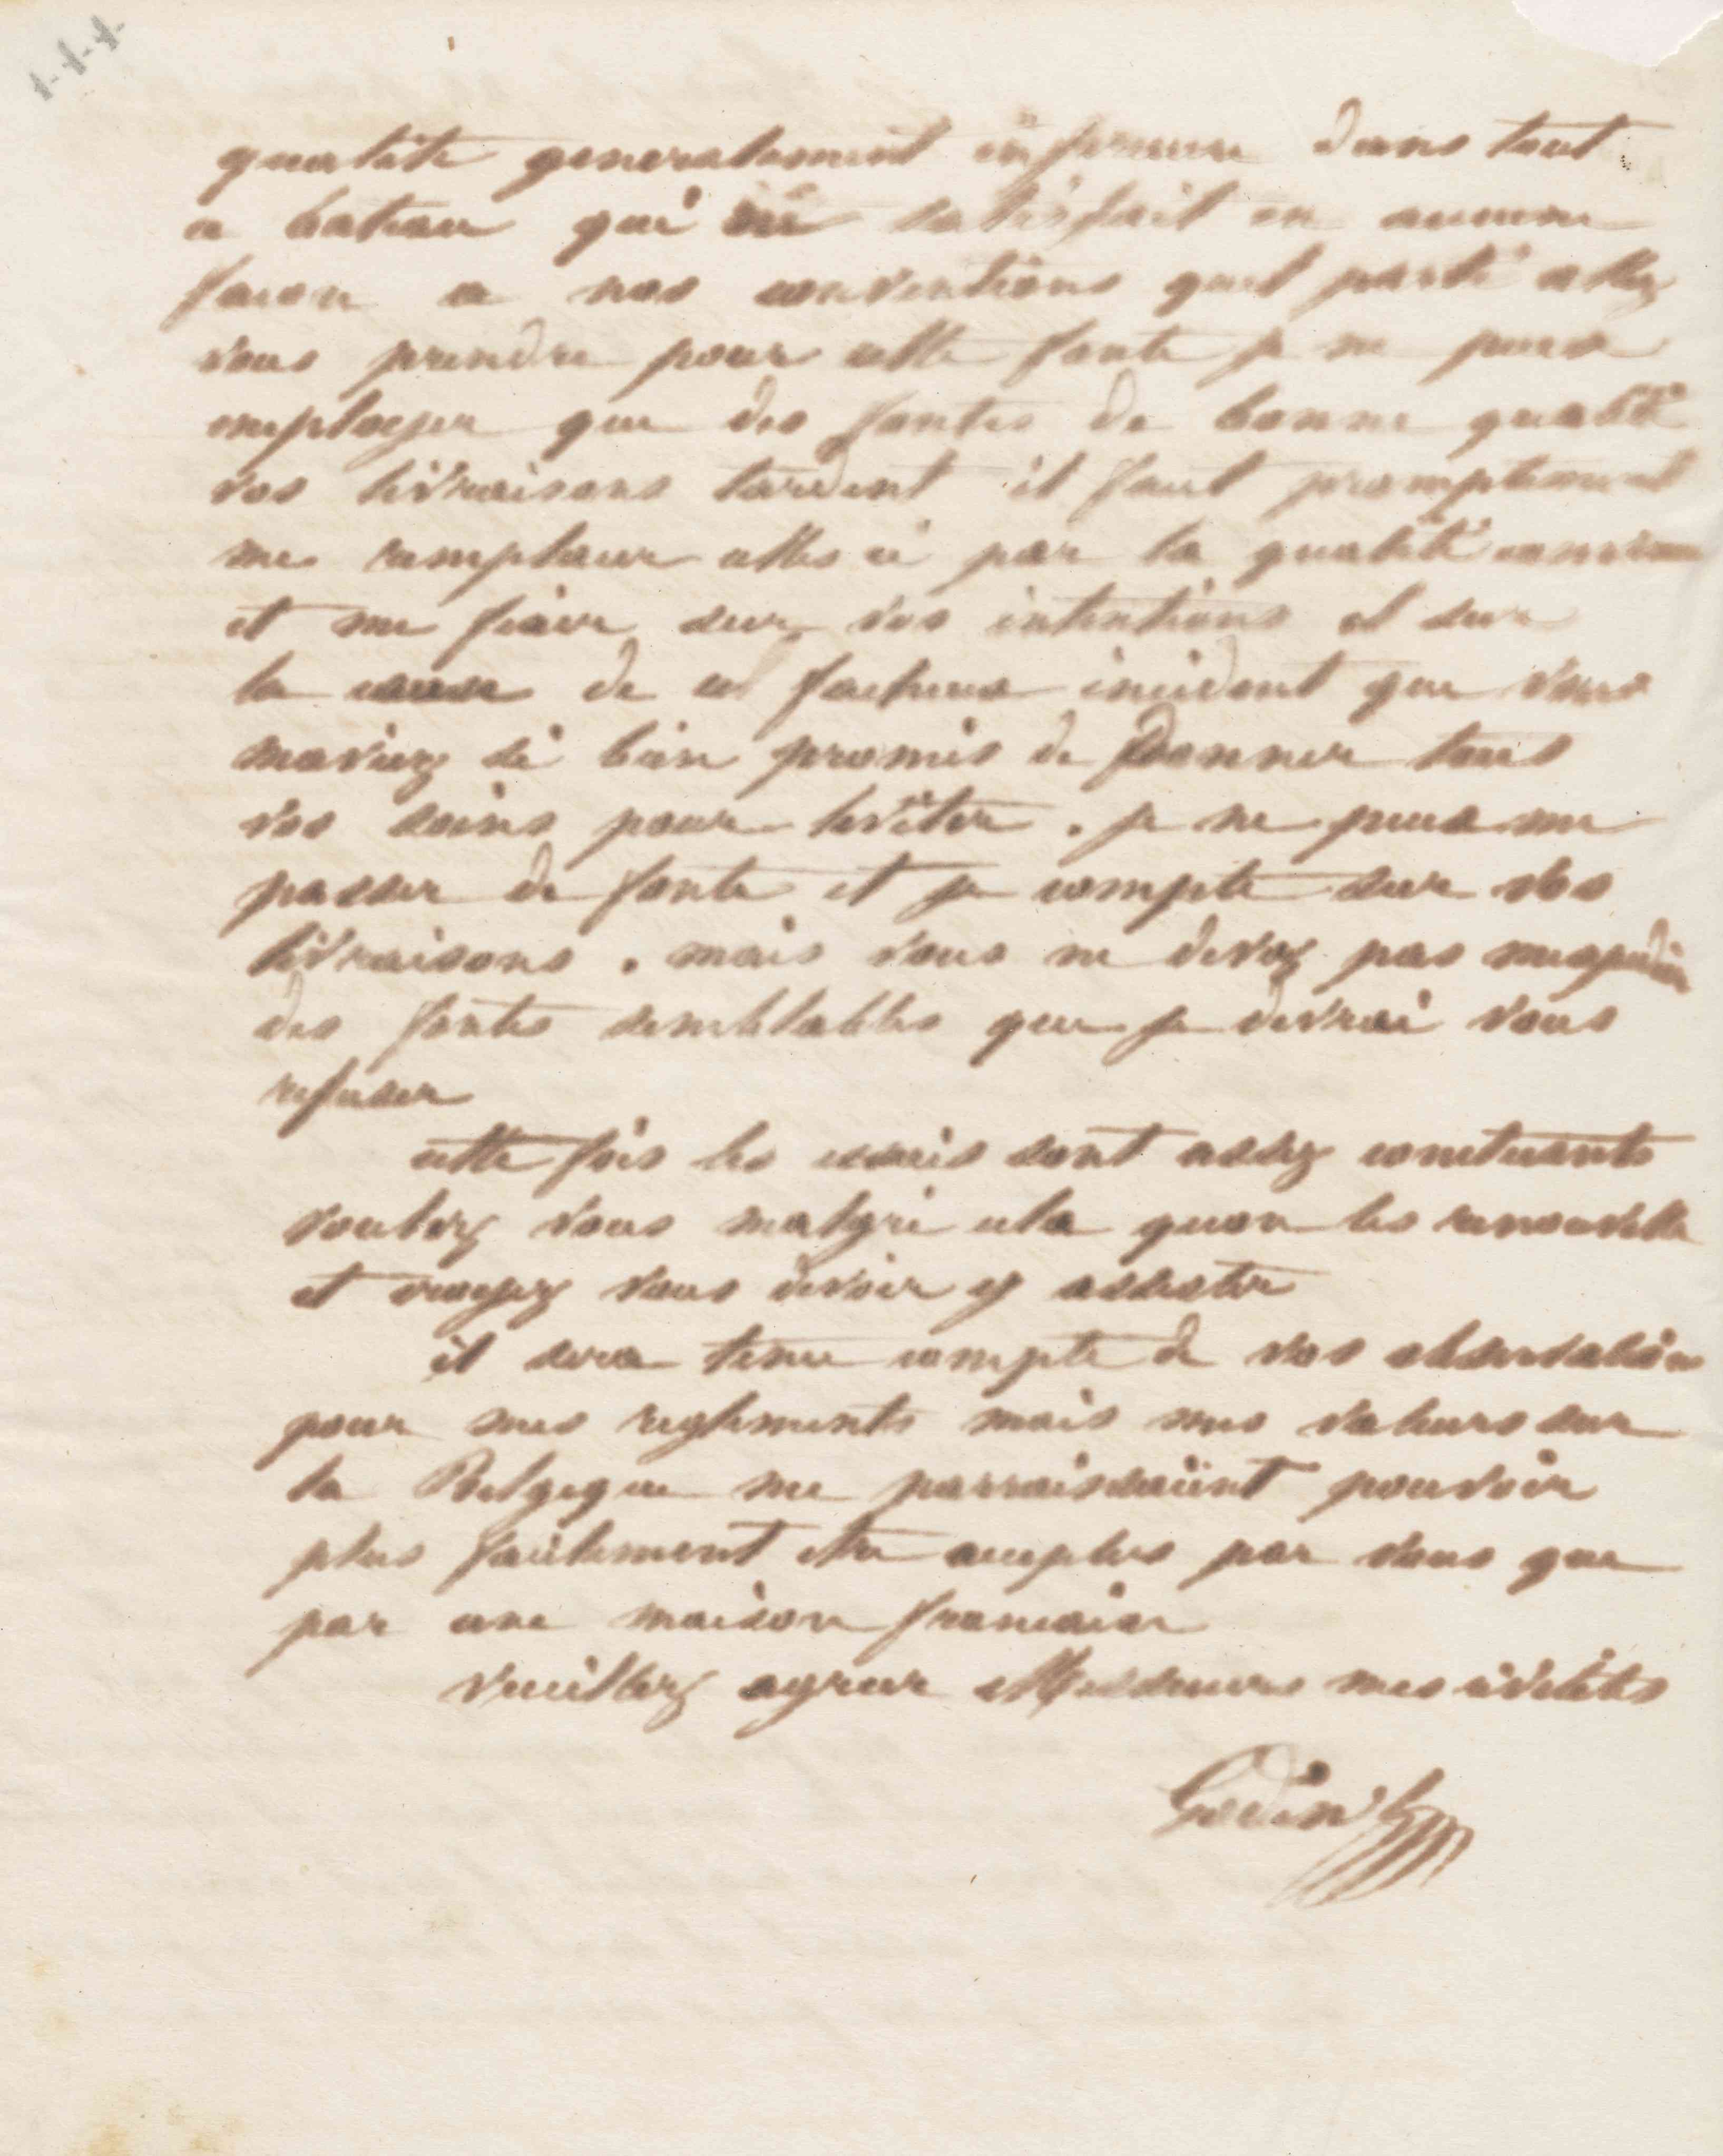 qualité generalement inferieure dans tout
ce bateau qui ne satisfait en aucune
facon a nos conventions quel parti allez
vous prendre pour cette fonte je ne puis
employer que des fontes de bonne qualité
vos livraisons tardent il faut promptement
me remplacer celles ci par la qualité convenue
et me fixer sur vos intentions et sur
la cause de ce facheux incident que vous
maviez si bien promis de donner tous
vos soins pour leviter . je ne puis me
passer de fonte et je compte sur vos
livraisons . mais vous ne devez pas mexpedier
des fontes semblables que je devrai vous
refuser
cette fois les essais sont assez concluants
voulez vous malgré cela quon les renouvelle
et croyez vous devoir y assister
il sera tenu compte de vos observations
pour mes reglements mais mes valeurs sur
la Belgique me parraissaient pouvoir
plus facilement etre acceptes par vous que
par une maison francaise
veuillez agreer Messieurs mes civilités
Godin